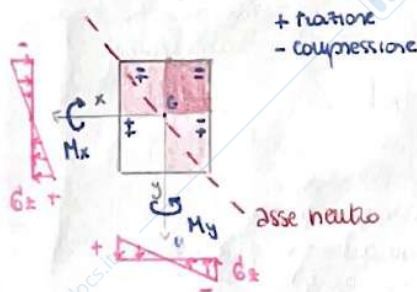 + trazione
- compressione
-
x
G
Mx
σz +
y
My
asse neutro
+
σz
-